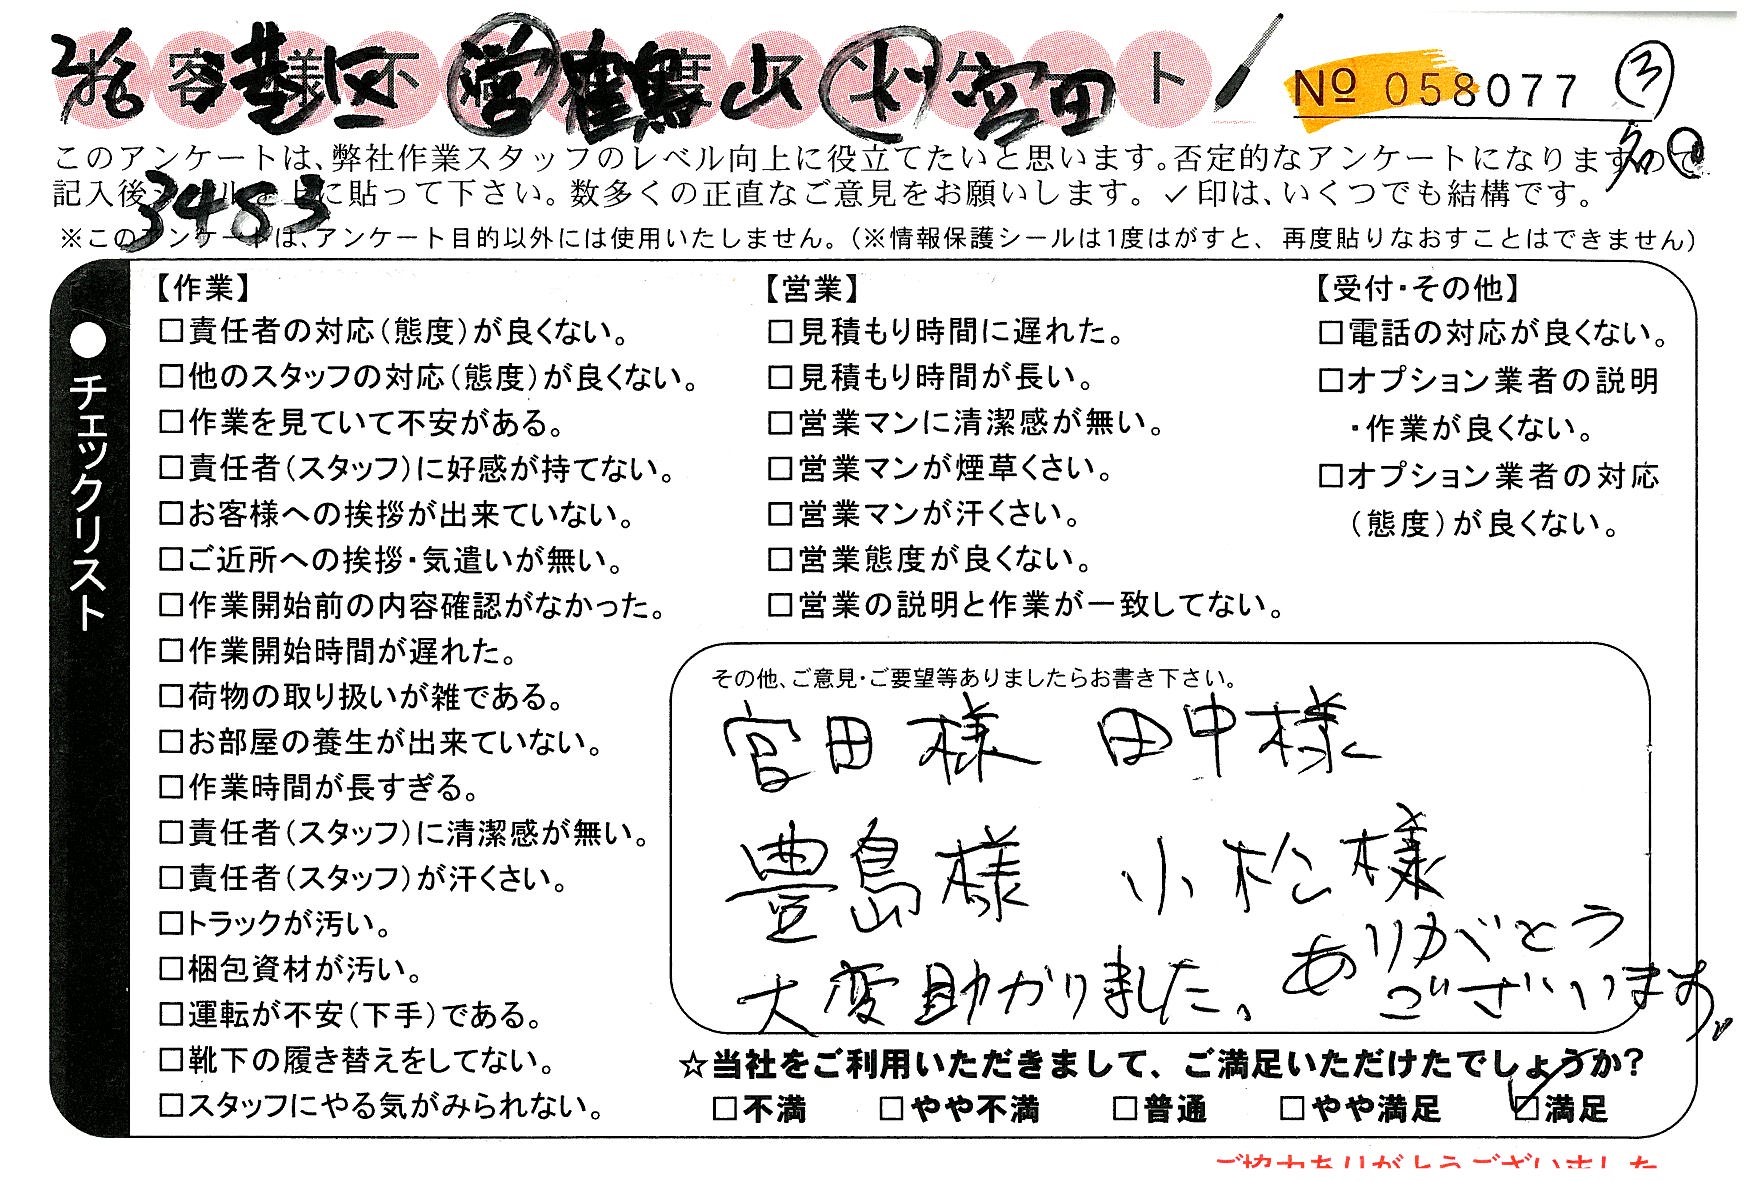 お客様不満度アンケート
2/6 葵区 営 鶴山 作 宮田
№ 058077 ③
名
このアンケートは、弊社作業スタッフのレベル向上に役立てたいと思います。否定的なアンケートになりますので
記入後シールを上に貼って下さい。数多くの正直なご意見をお願いします。✓印は、いくつでも結構です。
3483
※このアンケートは、アンケート目的以外には使用いたしません。(※情報保護シールは1度はがすと、再度貼りなおすことはできません)
●チェックリスト
【作業】
□責任者の対応(態度)が良くない。
□他のスタッフの対応(態度)が良くない。
□作業を見ていて不安がある。
□責任者(スタッフ)に好感が持てない。
□お客様への挨拶が出来ていない。
□ご近所への挨拶・気遣いが無い。
□作業開始前の内容確認がなかった。
□作業開始時間が遅れた。
□荷物の取り扱いが雑である。
□お部屋の養生が出来ていない。
□作業時間が長すぎる。
□責任者(スタッフ)に清潔感が無い。
□責任者(スタッフ)が汗くさい。
□トラックが汚い。
□梱包資材が汚い。
□運転が不安(下手)である。
□靴下の履き替えをしてない。
□スタッフにやる気がみられない。
【営業】
□見積もり時間に遅れた。
□見積もり時間が長い。
□営業マンに清潔感が無い。
□営業マンが煙草くさい。
□営業マンが汗くさい。
□営業態度が良くない。
□営業の説明と作業が一致してない。
【受付・その他】
□電話の対応が良くない。
□オプション業者の説明
・作業が良くない。
□オプション業者の対応
(態度)が良くない。
その他、ご意見・ご要望等ありましたらお書き下さい。
宮田様 田中様
豊島様 小松様
大変助かりました。ありがとう
ございます。
☆当社をご利用いただきまして、ご満足いただけたでしょうか?
□不満 □やや不満 □普通 □やや満足 ☑満足
ご協力ありがとうございました